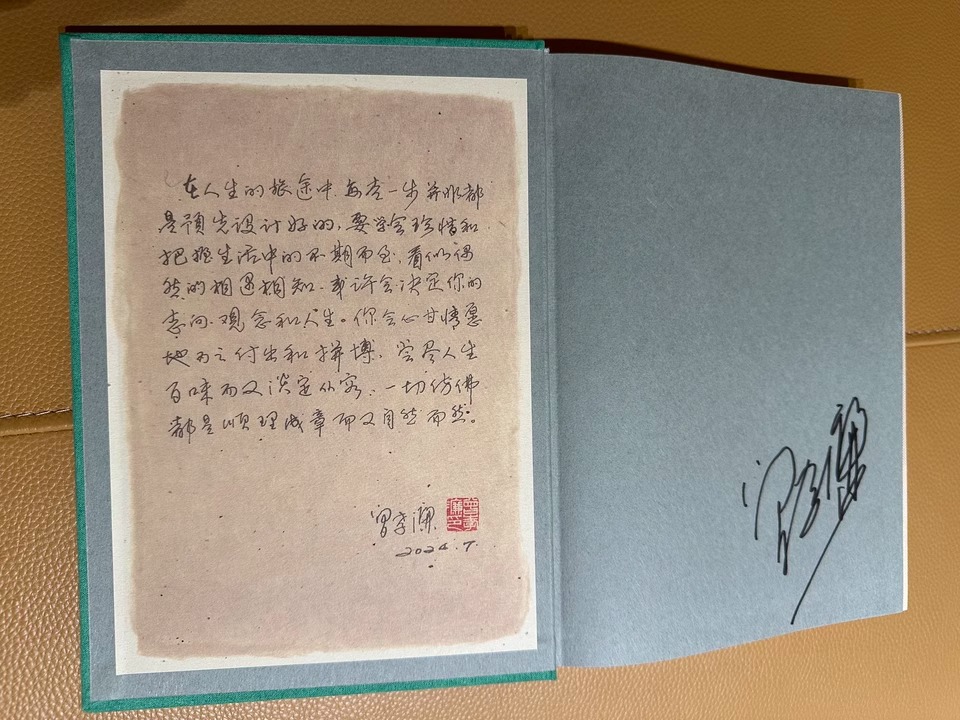 在人生的旅途中,每走一步并非都
是预先设计好的,要学会珍惜和
把握生活中的不期而至,看似偶
然的相遇相知,或许会决定你的
志向、观念和人生。你会心甘情愿
地为之付出和拼搏,尝尽人生
百味而又淡定从容,一切仿佛
都是顺理成章而又自然而然。
曾孝濂
2024.7.
曾孝濂印
曾孝濂